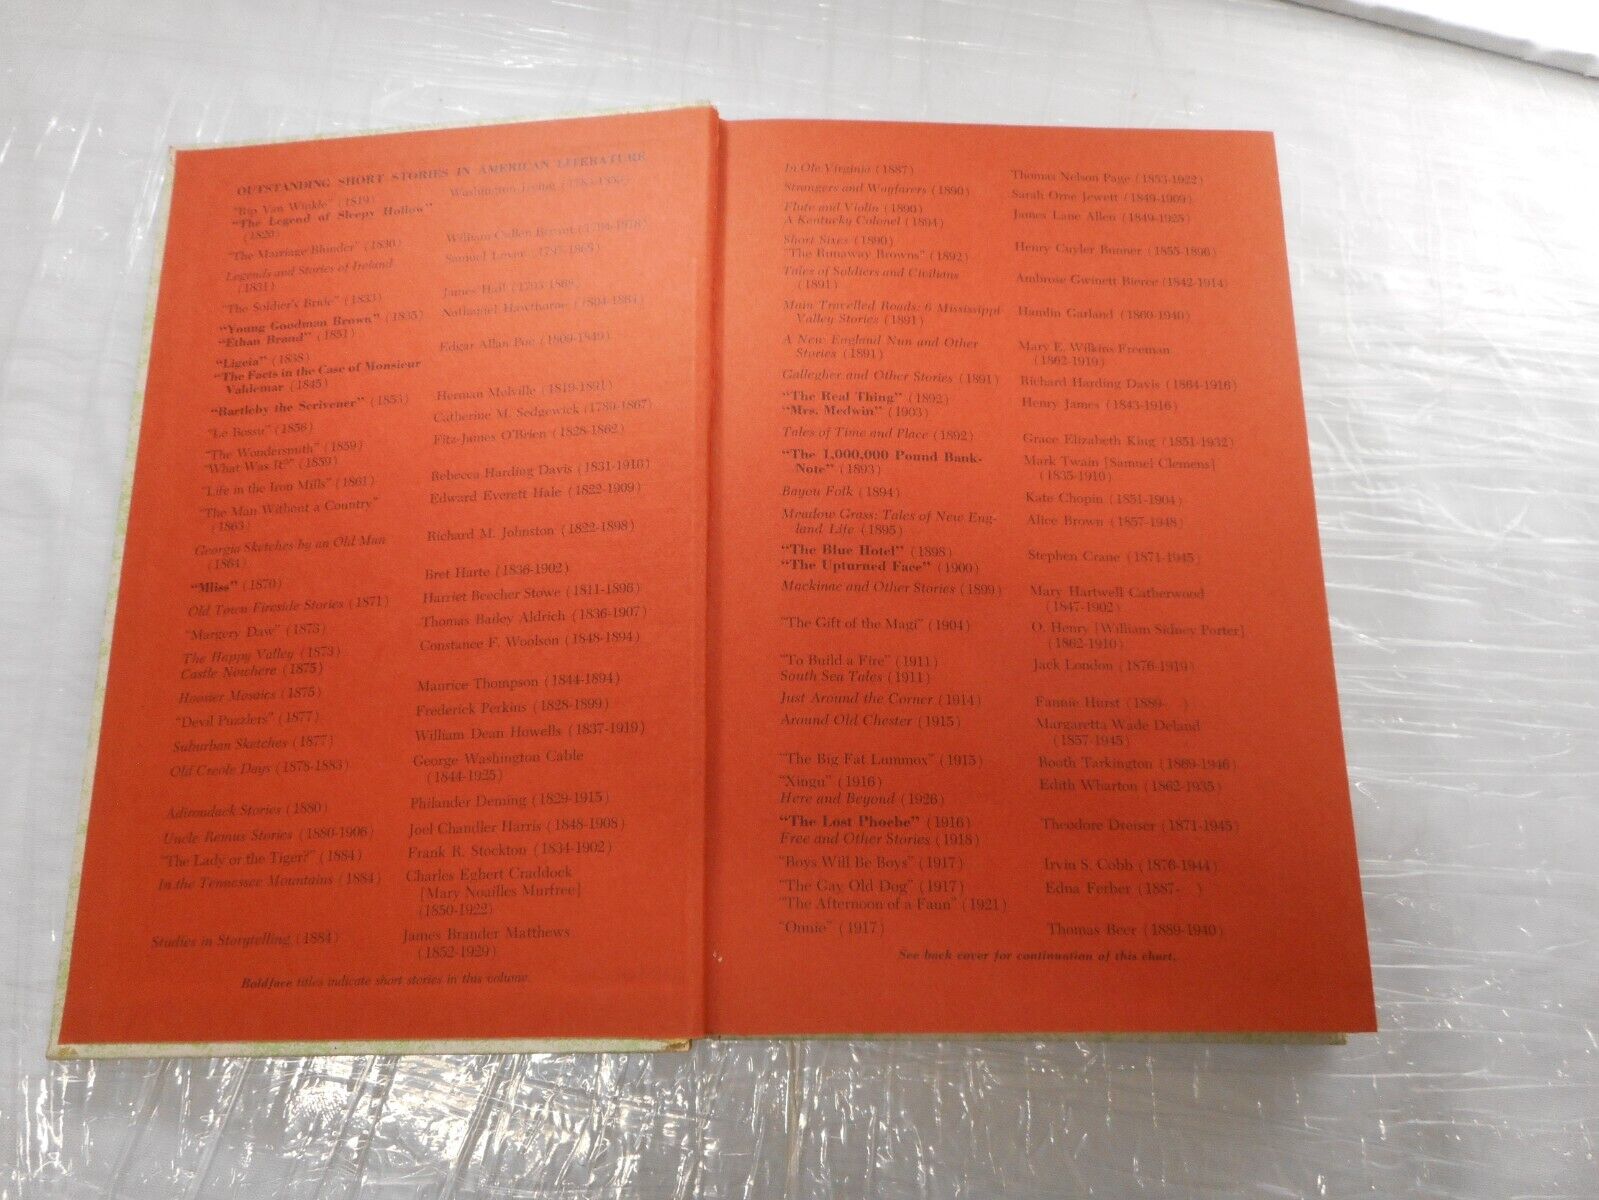 OUTSTANDING SHORT STORIES IN AMERICAN LITERATURE
"Rip Van Winkle" (1819) Washington Irving (1783-1859)
"The Legend of Sleepy Hollow"
(1820)
"The Marriage Blunder" (1830) William Cullen Bryant (1794-1878)
Legends and Stories of Ireland Samuel Lover (1797-1868)
(1831)
"The Soldier's Bride" (1833) James Hall (1793-1868)
"Young Goodman Brown" (1835) Nathaniel Hawthorne (1804-1864)
"Ethan Brand" (1851)
"Ligeia" (1838) Edgar Allan Poe (1809-1849)
"The Facts in the Case of Monsieur
Valdemar (1845)
"Bartleby the Scrivener" (1853) Herman Melville (1819-1891)
"Le Bossu" (1856) Catherine M. Sedgewick (1789-1867)
"The Wondersmith" (1859) Fitz-James O'Brien (1828-1862)
"What Was It?" (1859)
"Life in the Iron Mills" (1861) Rebecca Harding Davis (1831-1910)
"The Man Without a Country" Edward Everett Hale (1822-1909)
(1863)
Georgia Sketches by an Old Man Richard M. Johnston (1822-1898)
(1864)
"Mliss" (1870) Bret Harte (1836-1902)
Old Town Fireside Stories (1871) Harriet Beecher Stowe (1811-1896)
"Margery Daw" (1873) Thomas Bailey Aldrich (1836-1907)
The Happy Valley (1873) Constance F. Woolson (1848-1894)
Castle Nowhere (1875)
Hoosier Mosaics (1875) Maurice Thompson (1844-1894)
"Devil Puzzlers" (1877) Frederick Perkins (1828-1899)
Suburban Sketches (1877) William Dean Howells (1837-1919)
Old Creole Days (1878-1883) George Washington Cable
(1844-1925)
Adirondack Stories (1880) Philander Deming (1829-1915)
Uncle Remus Stories (1880-1906) Joel Chandler Harris (1848-1908)
"The Lady or the Tiger?" (1884) Frank R. Stockton (1834-1902)
In the Tennessee Mountains (1884) Charles Egbert Craddock
[Mary Noailles Murfree]
(1850-1922)
Studies in Storytelling (1884) James Brander Matthews
(1852-1929)
Boldface titles indicate short stories in this volume.
In Ole Virginia (1887) Thomas Nelson Page (1853-1922)
Strangers and Wayfarers (1890) Sarah Orne Jewett (1849-1909)
Flute and Violin (1890) James Lane Allen (1849-1925)
A Kentucky Colonel (1894)
Short Sixes (1890) Henry Cuyler Bunner (1855-1896)
"The Runaway Browns" (1892)
Tales of Soldiers and Civilians Ambrose Gwinett Bierce (1842-1914)
(1891)
Main Travelled Roads: 6 Mississippi Hamlin Garland (1860-1940)
Valley Stories (1891)
A New England Nun and Other Mary E. Wilkins Freeman
Stories (1891) (1862-1919)
Gallegher and Other Stories (1891) Richard Harding Davis (1864-1916)
"The Real Thing" (1892) Henry James (1843-1916)
"Mrs. Medwin" (1903)
Tales of Time and Place (1892) Grace Elizabeth King (1851-1932)
"The 1,000,000 Pound Bank- Mark Twain [Samuel Clemens]
Note" (1893) (1835-1910)
Bayou Folk (1894) Kate Chopin (1851-1904)
Meadow Grass: Tales of New Eng- Alice Brown (1857-1948)
land Life (1895)
"The Blue Hotel" (1898) Stephen Crane (1871-1945)
"The Upturned Face" (1900)
Mackinac and Other Stories (1899) Mary Hartwell Catherwood
(1847-1902)
"The Gift of the Magi" (1904) O. Henry [William Sidney Porter]
(1862-1910)
"To Build a Fire" (1911) Jack London (1876-1919)
South Sea Tales (1911)
Just Around the Corner (1914) Fannie Hurst (1889- )
Around Old Chester (1915) Margaretta Wade Deland
(1857-1945)
"The Big Fat Lummox" (1915) Booth Tarkington (1869-1946)
"Xingu" (1916) Edith Wharton (1862-1935)
Here and Beyond (1926)
"The Lost Phoebe" (1916) Theodore Dreiser (1871-1945)
Free and Other Stories (1918)
"Boys Will Be Boys" (1917) Irvin S. Cobb (1876-1944)
"The Gay Old Dog" (1917) Edna Ferber (1887- )
"The Afternoon of a Faun" (1921)
"Onnie" (1917) Thomas Beer (1889-1940)
See back cover for continuation of this chart.